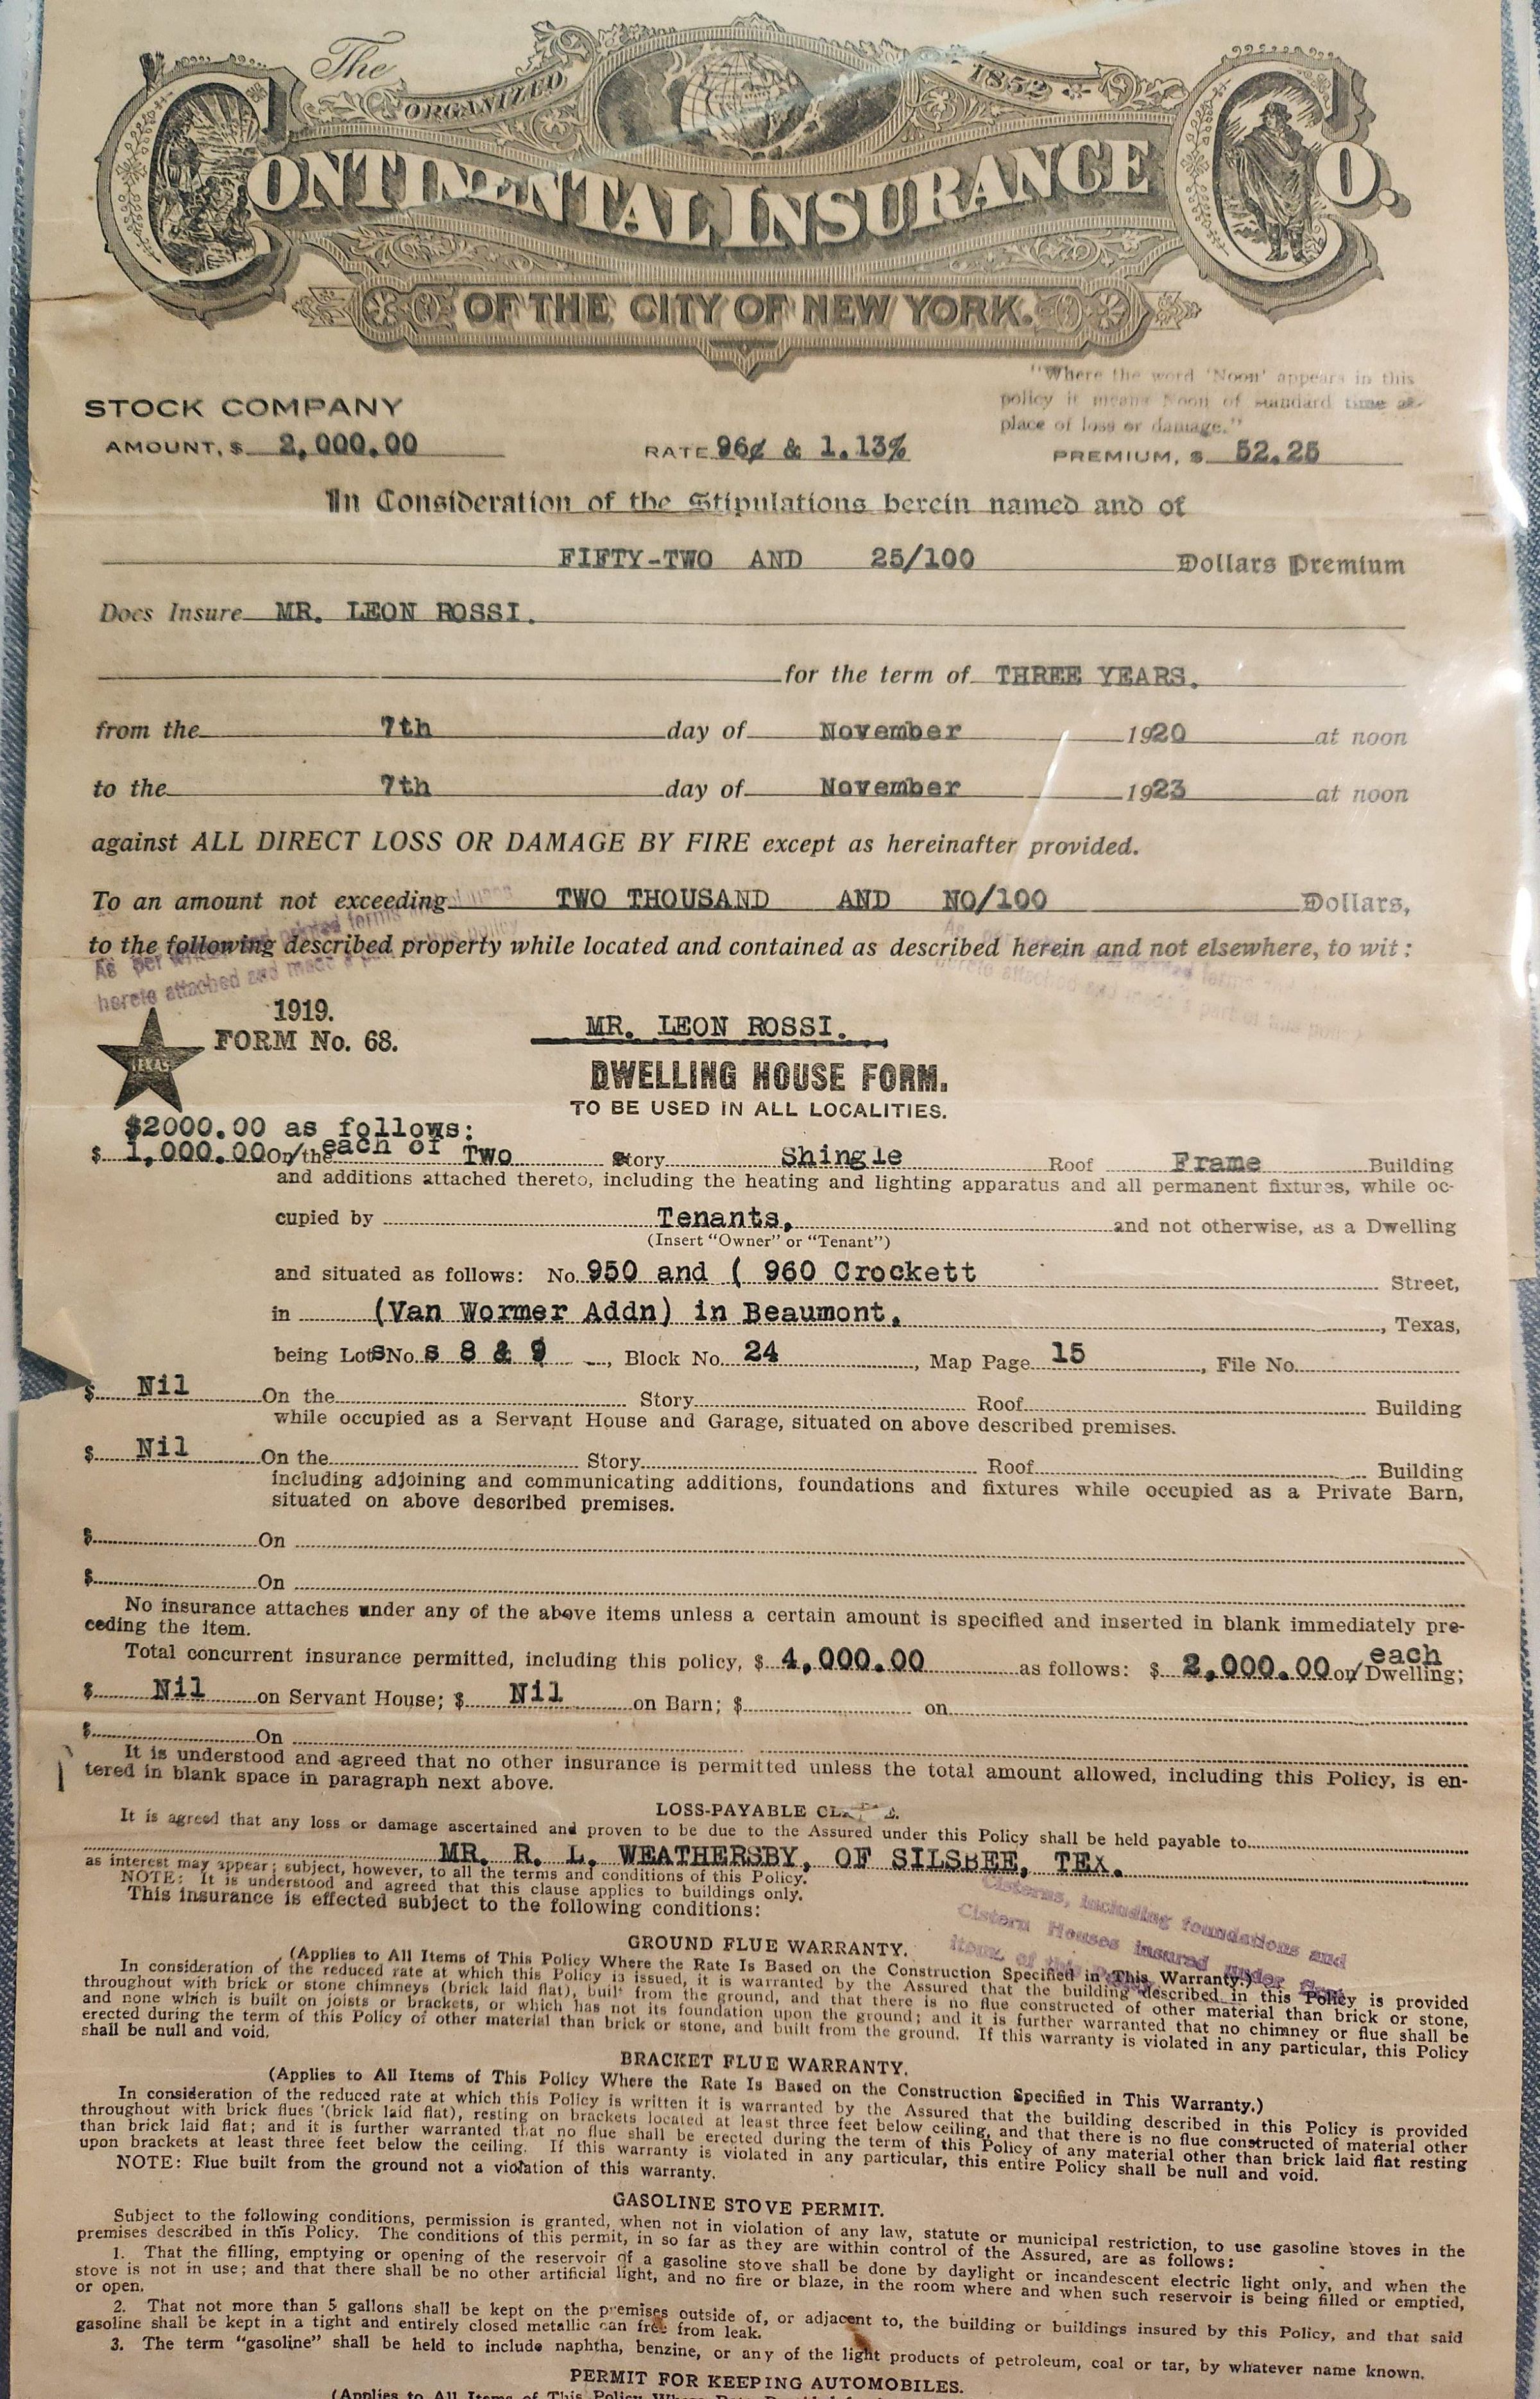 The
ORGANIZED 1852
CONTINENTAL INSURANCE CO.
OF THE CITY OF NEW YORK.
"Where the word 'Noon' appears in this
policy it means Noon of standard time at
place of loss or damage."
STOCK COMPANY
AMOUNT, $ 2,000.00 RATE 96¢ & 1.13% PREMIUM, $ 52.25
In Consideration of the Stipulations herein named and of
FIFTY-TWO AND 25/100 Dollars Premium
Does Insure MR. LEON ROSSI.
for the term of THREE YEARS.
from the 7th day of November 1920 at noon
to the 7th day of November 1923 at noon
against ALL DIRECT LOSS OR DAMAGE BY FIRE except as hereinafter provided.
To an amount not exceeding TWO THOUSAND AND NO/100 Dollars,
to the following described property while located and contained as described herein and not elsewhere, to wit:
As per forms
hereto attached and made a
1919.
FORM No. 68.
TEXAS
MR. LEON ROSSI.
DWELLING HOUSE FORM.
TO BE USED IN ALL LOCALITIES.
$2000.00 as follows:
$ 1,000.00 On/the each of Two Story Shingle Roof Frame Building
and additions attached thereto, including the heating and lighting apparatus and all permanent fixtures, while oc-
cupied by Tenants, and not otherwise, as a Dwelling
(Insert "Owner" or "Tenant")
and situated as follows: No. 950 and ( 960 Crockett Street,
in (Van Wormer Addn) in Beaumont, Texas,
being Lots No. s 8 & 9, Block No. 24, Map Page 15, File No.
$ Nil On the Story Roof Building
while occupied as a Servant House and Garage, situated on above described premises.
$ Nil On the Story Roof Building
including adjoining and communicating additions, foundations and fixtures while occupied as a Private Barn,
situated on above described premises.
$ On
$ On
No insurance attaches under any of the above items unless a certain amount is specified and inserted in blank immediately pre-
ceding the item.
Total concurrent insurance permitted, including this policy, $ 4,000.00 as follows: $ 2,000.00 on/each Dwelling;
$ Nil on Servant House; $ Nil on Barn; $ on
$ On
It is understood and agreed that no other insurance is permitted unless the total amount allowed, including this Policy, is en-
tered in blank space in paragraph next above.
LOSS-PAYABLE
It is agreed that any loss or damage ascertained and proven to be due to the Assured under this Policy shall be held payable to
MR. R. L. WEATHERSBY, OF SILSBEE, TEX.
as interest may appear; subject, however, to all the terms and conditions of this Policy.
NOTE: It is understood and agreed that this clause applies to buildings only.
This insurance is effected subject to the following conditions:
Cisterns, including foundations and
Cistern Houses insured under first
item of this
GROUND FLUE WARRANTY.
(Applies to All Items of This Policy Where the Rate Is Based on the Construction Specified in This Warranty.)
In consideration of the reduced rate at which this Policy is issued, it is warranted by the Assured that the building described in this Policy is provided
throughout with brick or stone chimneys (brick laid flat), built from the ground, and that there is no flue constructed of other material than brick or stone,
and none which is built on joists or brackets, or which has not its foundation upon the ground; and it is further warranted that no chimney or flue shall be
erected during the term of this Policy of other material than brick or stone, and built from the ground. If this warranty is violated in any particular, this Policy
shall be null and void.
BRACKET FLUE WARRANTY.
(Applies to All Items of This Policy Where the Rate Is Based on the Construction Specified in This Warranty.)
In consideration of the reduced rate at which this Policy is written it is warranted by the Assured that the building described in this Policy is provided
throughout with brick flues (brick laid flat), resting on brackets located at least three feet below ceiling, and that there is no flue constructed of material other
than brick laid flat; and it is further warranted that no flue shall be erected during the term of this Policy of any material other than brick laid flat resting
upon brackets at least three feet below the ceiling. If this warranty is violated in any particular, this entire Policy shall be null and void.
NOTE: Flue built from the ground not a violation of this warranty.
GASOLINE STOVE PERMIT.
Subject to the following conditions, permission is granted, when not in violation of any law, statute or municipal restriction, to use gasoline stoves in the
premises described in this Policy. The conditions of this permit, in so far as they are within control of the Assured, are as follows:
1. That the filling, emptying or opening of the reservoir of a gasoline stove shall be done by daylight or incandescent electric light only, and when the
stove is not in use; and that there shall be no other artificial light, and no fire or blaze, in the room where and when such reservoir is being filled or emptied,
or open.
2. That not more than 5 gallons shall be kept on the premises outside of, or adjacent to, the building or buildings insured by this Policy, and that said
gasoline shall be kept in a tight and entirely closed metallic can free from leak.
3. The term "gasoline" shall be held to include naphtha, benzine, or any of the light products of petroleum, coal or tar, by whatever name known.
PERMIT FOR KEEPING AUTOMOBILES.
(Applies to All Items of This Policy